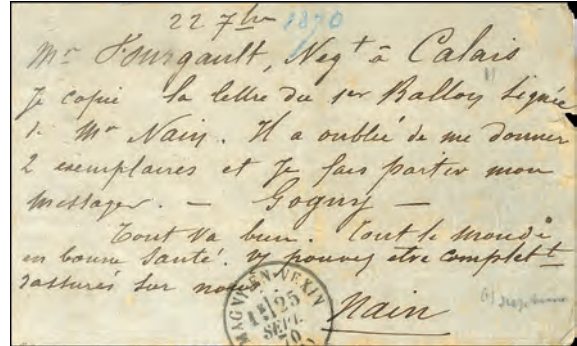 22 7bre 1870
Mr Fourgault, Negt à Calais
Je copie la lettre du 1er Ballon signée
1. Mr Nain. Il a oublié de me donner
2 exemplaires et Je fais partir mon
messager. — Gogny —
Tout va bien. Tout le monde
en bonne Santé. Vs pouvez être complett
rassurés sur nous.
Nain
MAGNY-EN-VEXIN
1E/25
SEPT.
70